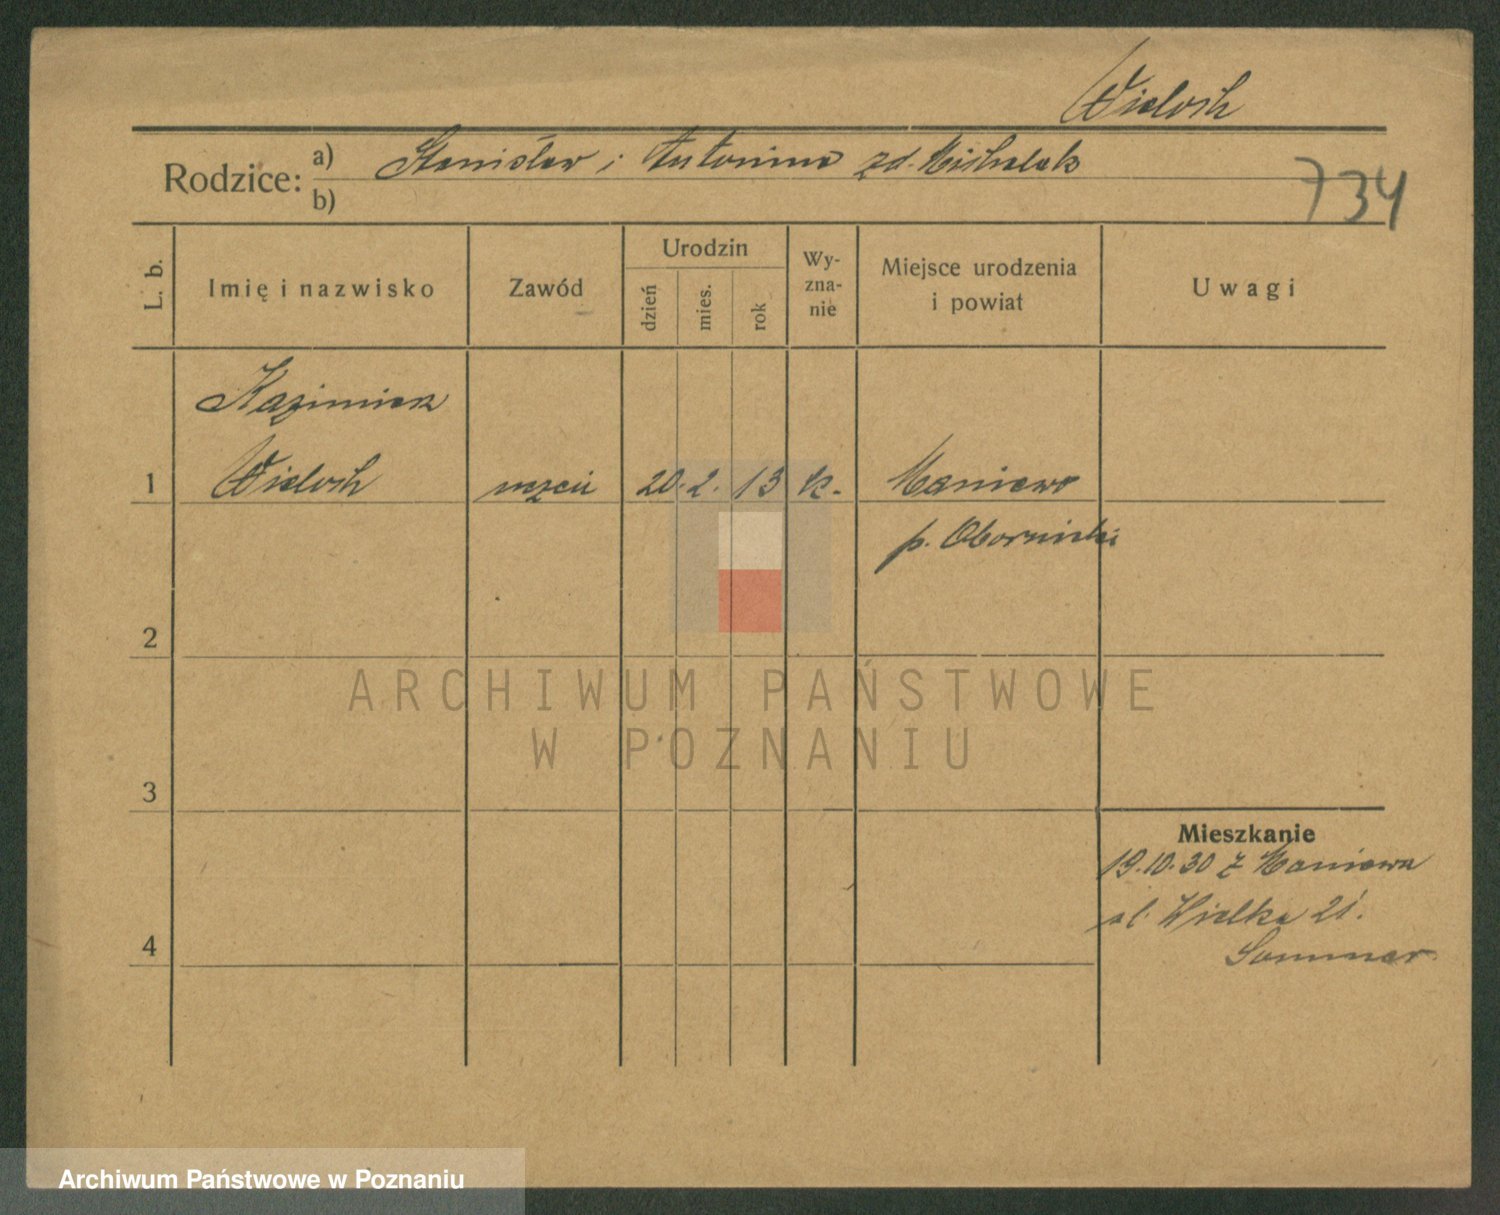 Wieloch
Rodzice: a) Stanisław i Antonina zd. Michalak
b)
734
L. b.
Imię i nazwisko
Zawód
Urodzin
dzień
mies.
rok
Wy-
zna-
nie
Miejsce urodzenia
i powiat
Uwagi
Kazimierz
1 Wieloch uczeń 20. 2. 13 k. Maniewo
p. Obornicki
2
ARCHIWUM PAŃSTWOWE
W POZNANIU
3
Mieszkanie
19.10.30 z Maniewa
ul. Wielka 21.
Sommer
4
Archiwum Państwowe w Poznaniu